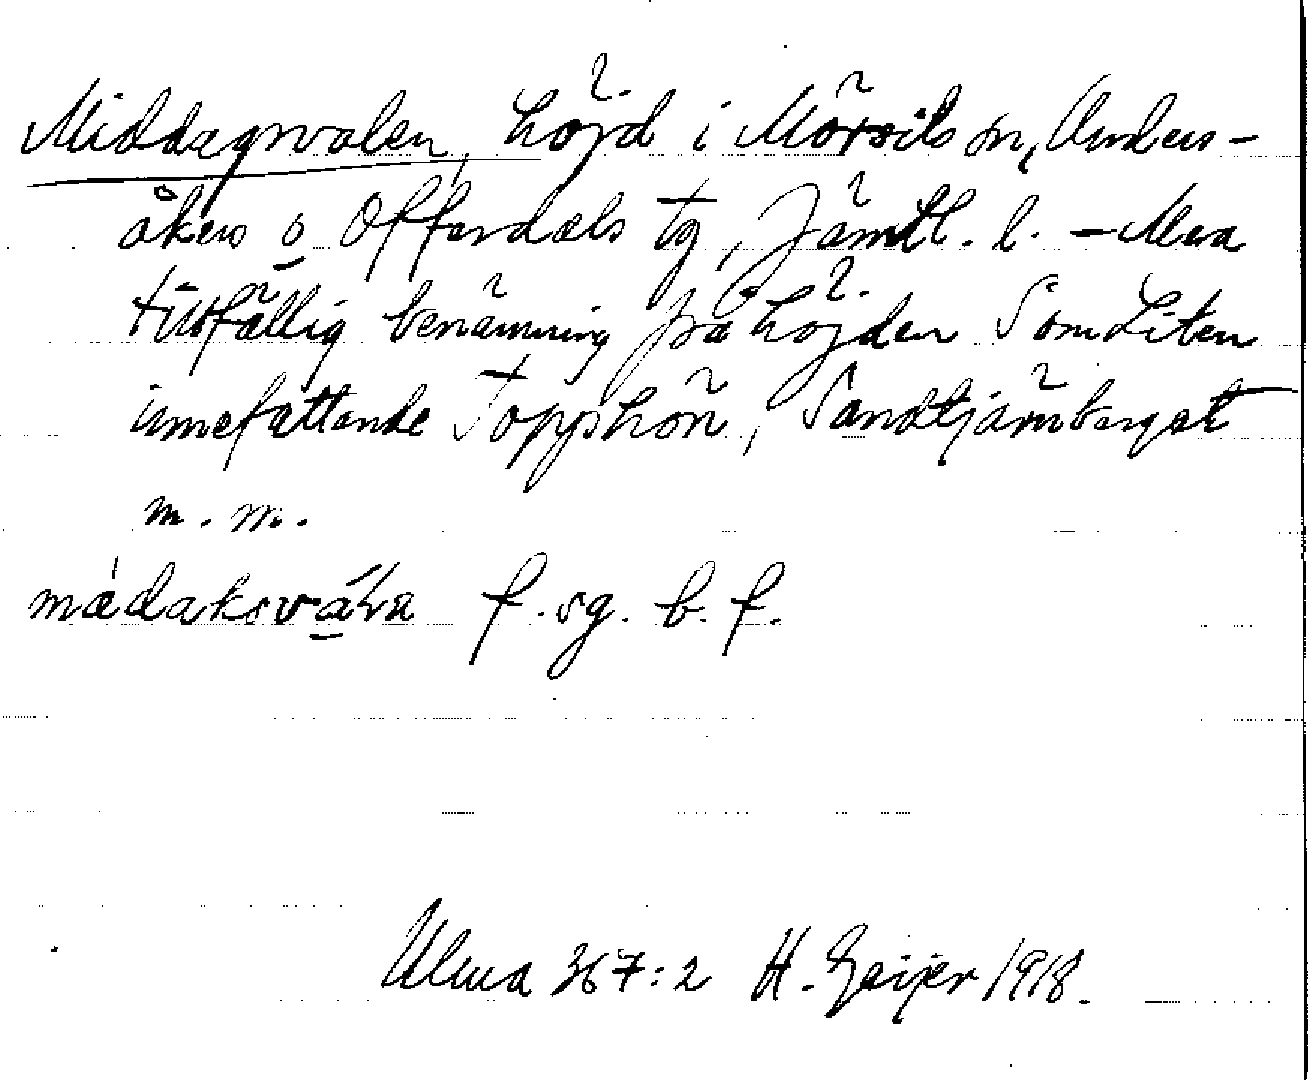 Middagsvalen, höjd i Mörsils sn, Unders-
åkers o Offerdals tg, Jämtl. l. – Mera
tillfällig benämning på höjden som Liten
innefattande Topphön, Sandtjärnberget
m. m.
f. sg. b. f.
Ulma 367:2 H. Geijer 1918.